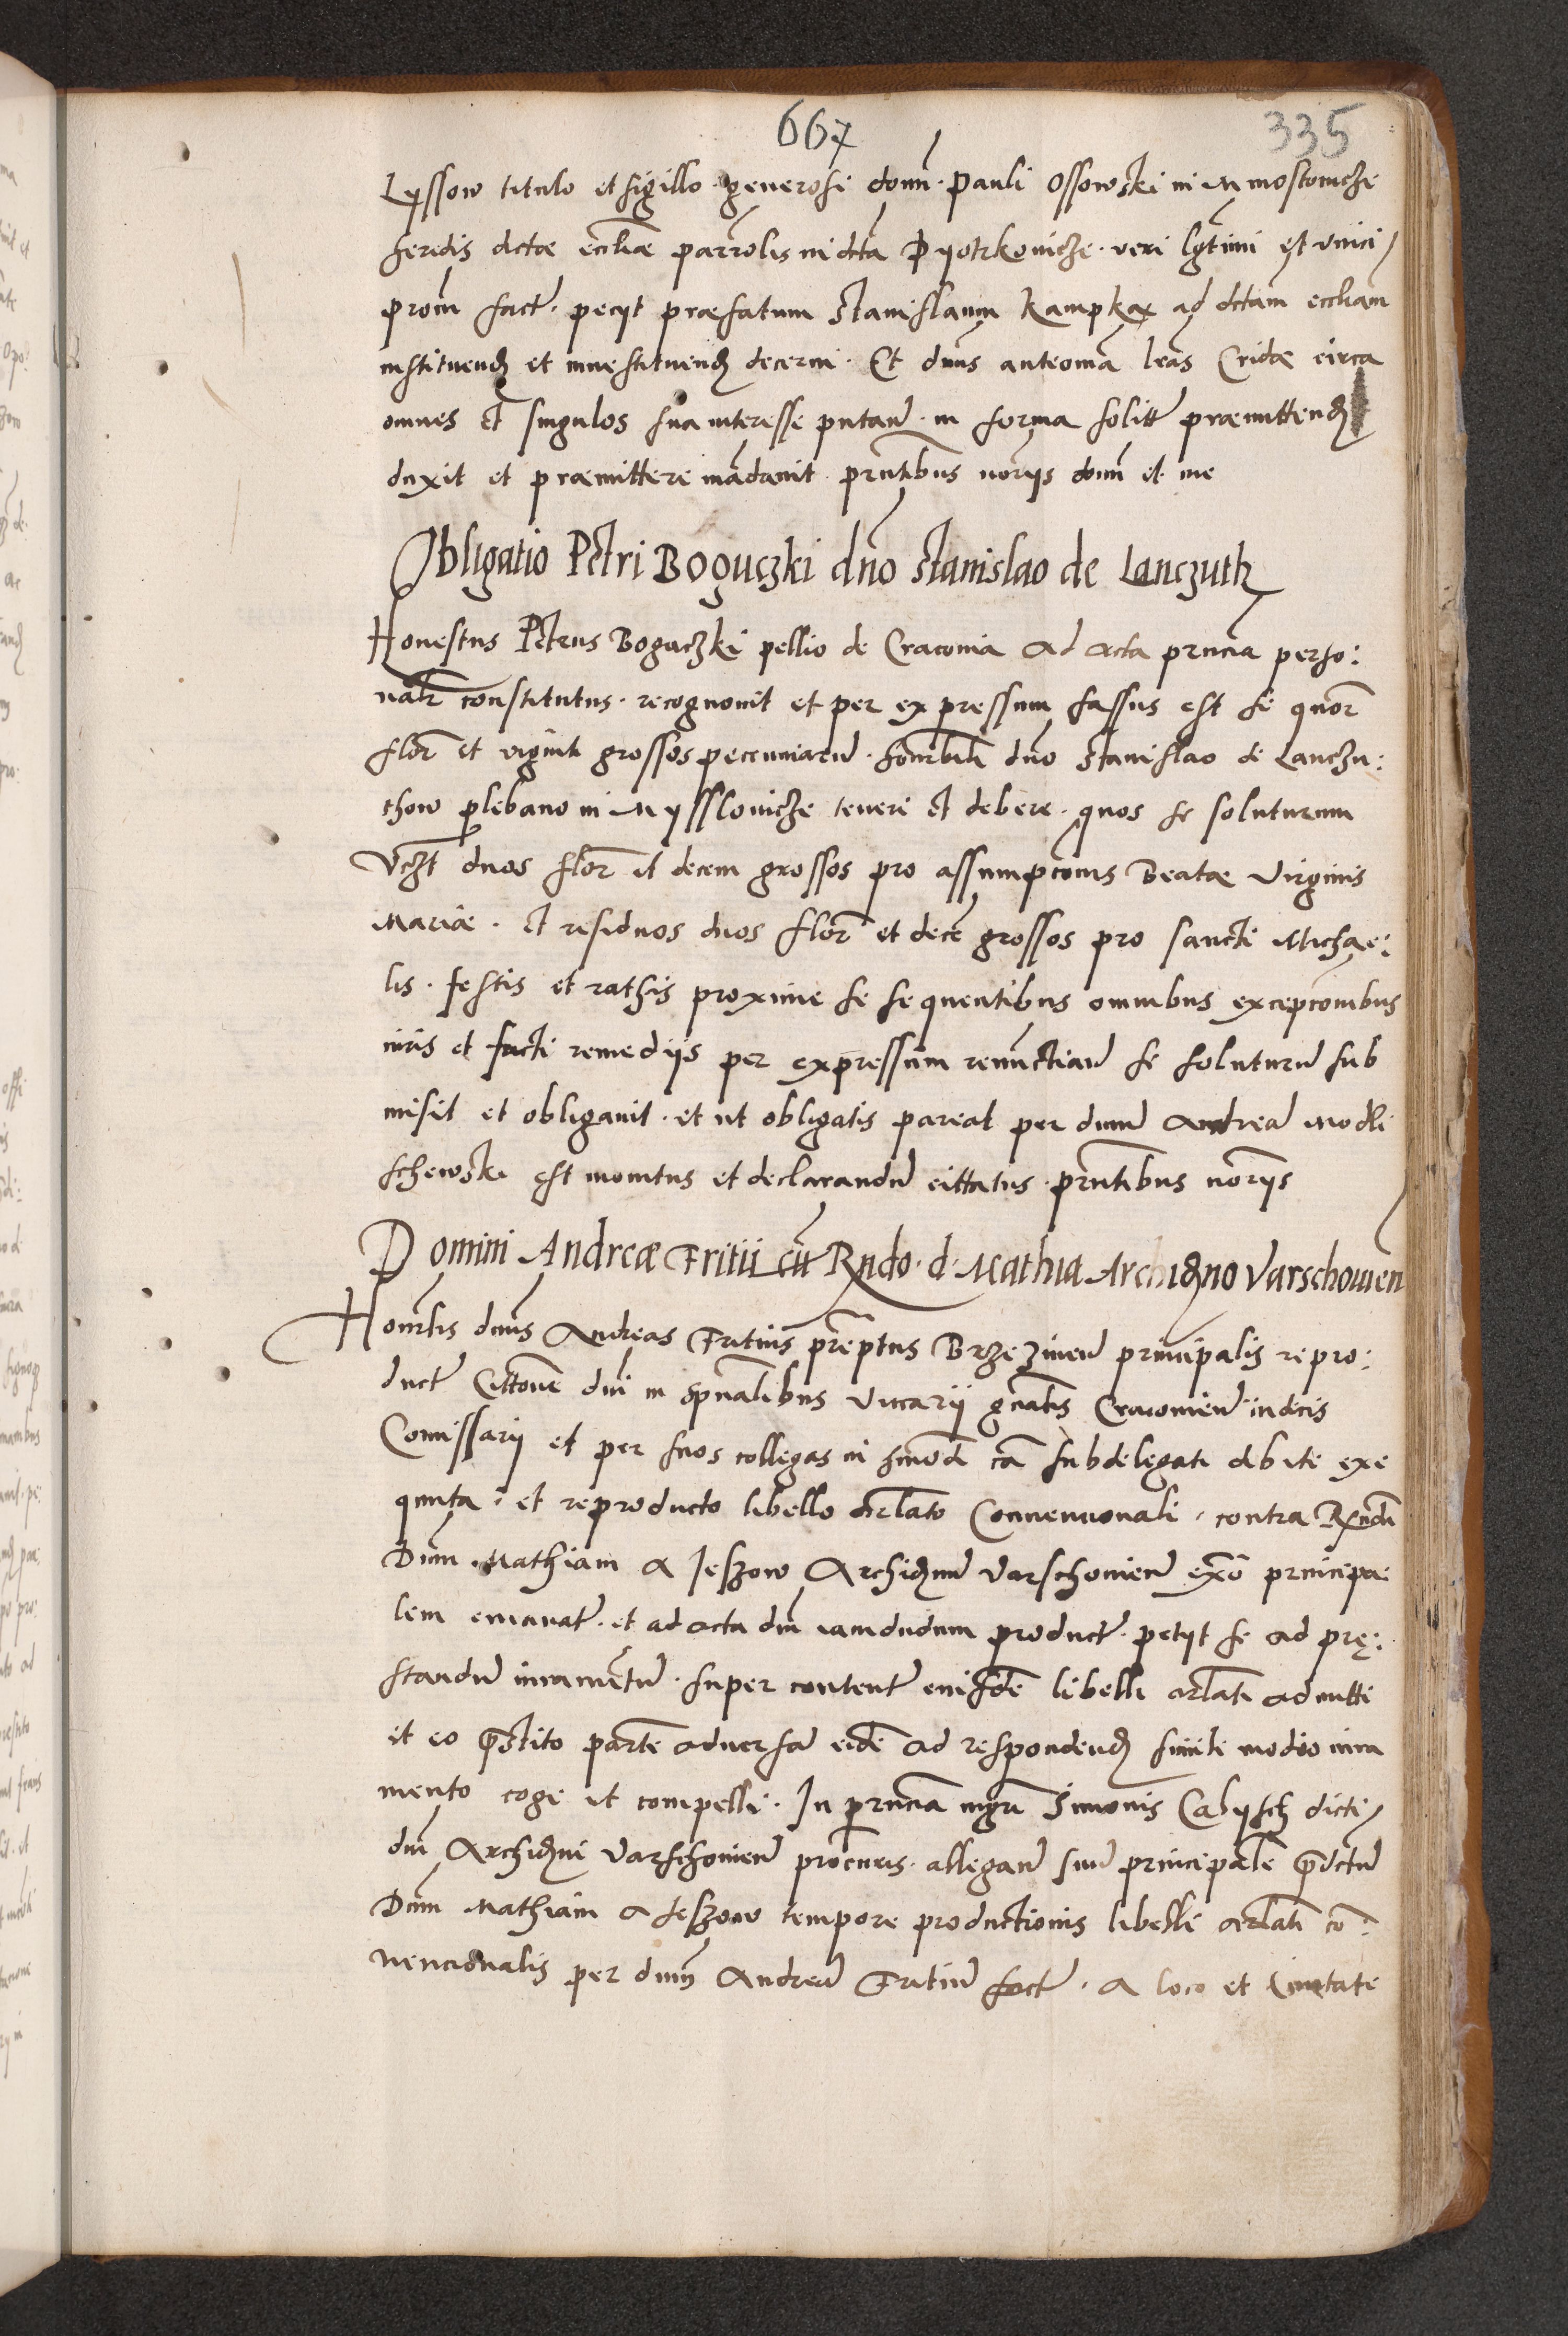 667
335
Lyssow titulo et sigillo generosi domi Pauli Ossowski in Mmostowicze
heredis dctæ eccliæ parrolis in dcta Pyotrkowicze veri lgtimi et vnici
procm fact. peciit præfatum Stanislaum Kampka ad dctam eccliam
instituend et inuestituend decerni. Et dnus anteoma lras Cridæ circa
omnes et singulos sua interesse putan. in forma solitt præmittend
duxit et præmittere mandauit. prntibus noriis domi et me
Obligatio Petri Boguczki dno Stanislao de Lanczuth
Honestus Petrus Boguczki pellio de Cracouia ad acta prncia perso:
nalr constitutus. recognouit et per expressum fassus est se quor
flor et viginti grossos pecuniaru. honorbili dno Stanislao de Lanczu:
thow plebano in Mysslowicze teneri et debere. quos se soluturum
Vczt duos flor et decem grossos pro assumpconis Beatæ Virginis
Mariæ. et residuos duos flor et dece grossos pro sancti Michae:
lis. festis et rathis proxime se sequentibus omnibus excepconibus
iuris et facti remediis per expressum renunctian se soluturu sub
misit et obligauit. et ut obligatis pareat per dnum Andrea Modli
schewski est monitus et declarandu cittatus. prntibus noriis
Domini Andreæ Fritii cu Rndo. d. Mathia Archidno Varschouien
Honorlis dnus Andreas Fritius præptus Brzezinen principalis repro:
duct Cittone dni in spualibus Vicarii gnalis Cracouien iudicis
Comissarii et per suos collegas in hmodi ca subdelegati debite exe
quuta. et reproducto libello arlato Conuencionali. contra Rndu
Dnm Mathiam a Jeszow Archidnu Varschouien exo principa:
lem emanat. et ad acta dni iamdudum product. petiit se ad præ:
standu iuramentu. super content eiusde libelli arlati admitti
et eo prstito parte aduersa eide ad respondend simili modo iura
mento cogi et compelli. In prncia mgri Simonis Cabysch dicti
dni Archidni Varschouien procuris. allegan suu principale prdctu
Dnm Mathiam a Jeszow tempore productionis libelli arlati co:
nencionalis per dnum Andrea Fritiu fact. a loco et Ciuitate